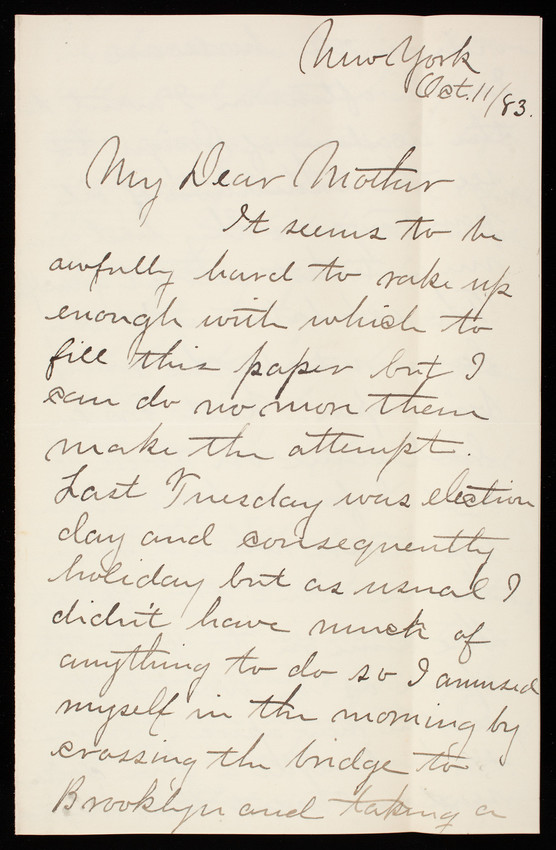 New York
Oct. 11/83.
My Dear Mother
It seems to be
awfully hard to rake up
enough with which to
fill this paper but I
can do no more then
make the attempt.
Last Tuesday was election
day and consequently
holiday but as usual I
didn't have much of
anything to do so I amused
myself in the morning by
crossing the bridge to
Brooklyn and taking a